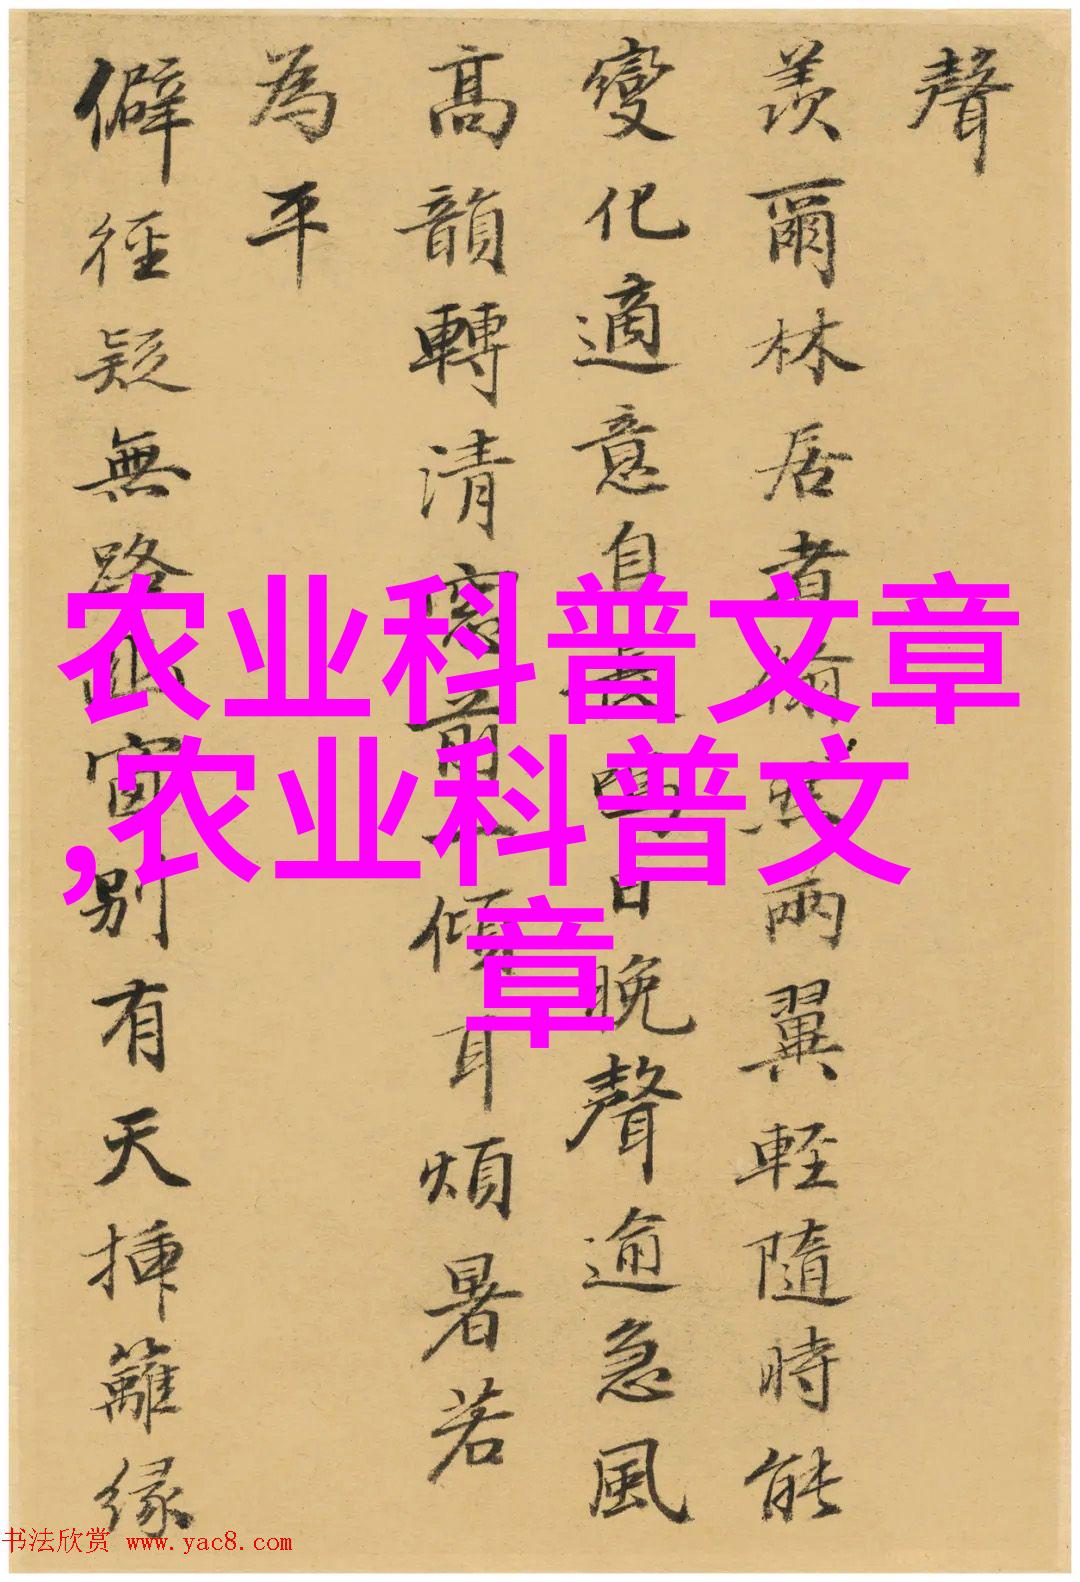 聲
羨爾林居者翛然兩翼輕隨時能
變化適意自長鳴日晚聲逾急風
高韻轉清窓前一傾耳煩暑若
為平
僻徑疑無路幽窗別有天插籬緣
农业科普文章
,农业科普文
章
书法欣赏 www.yac8.com